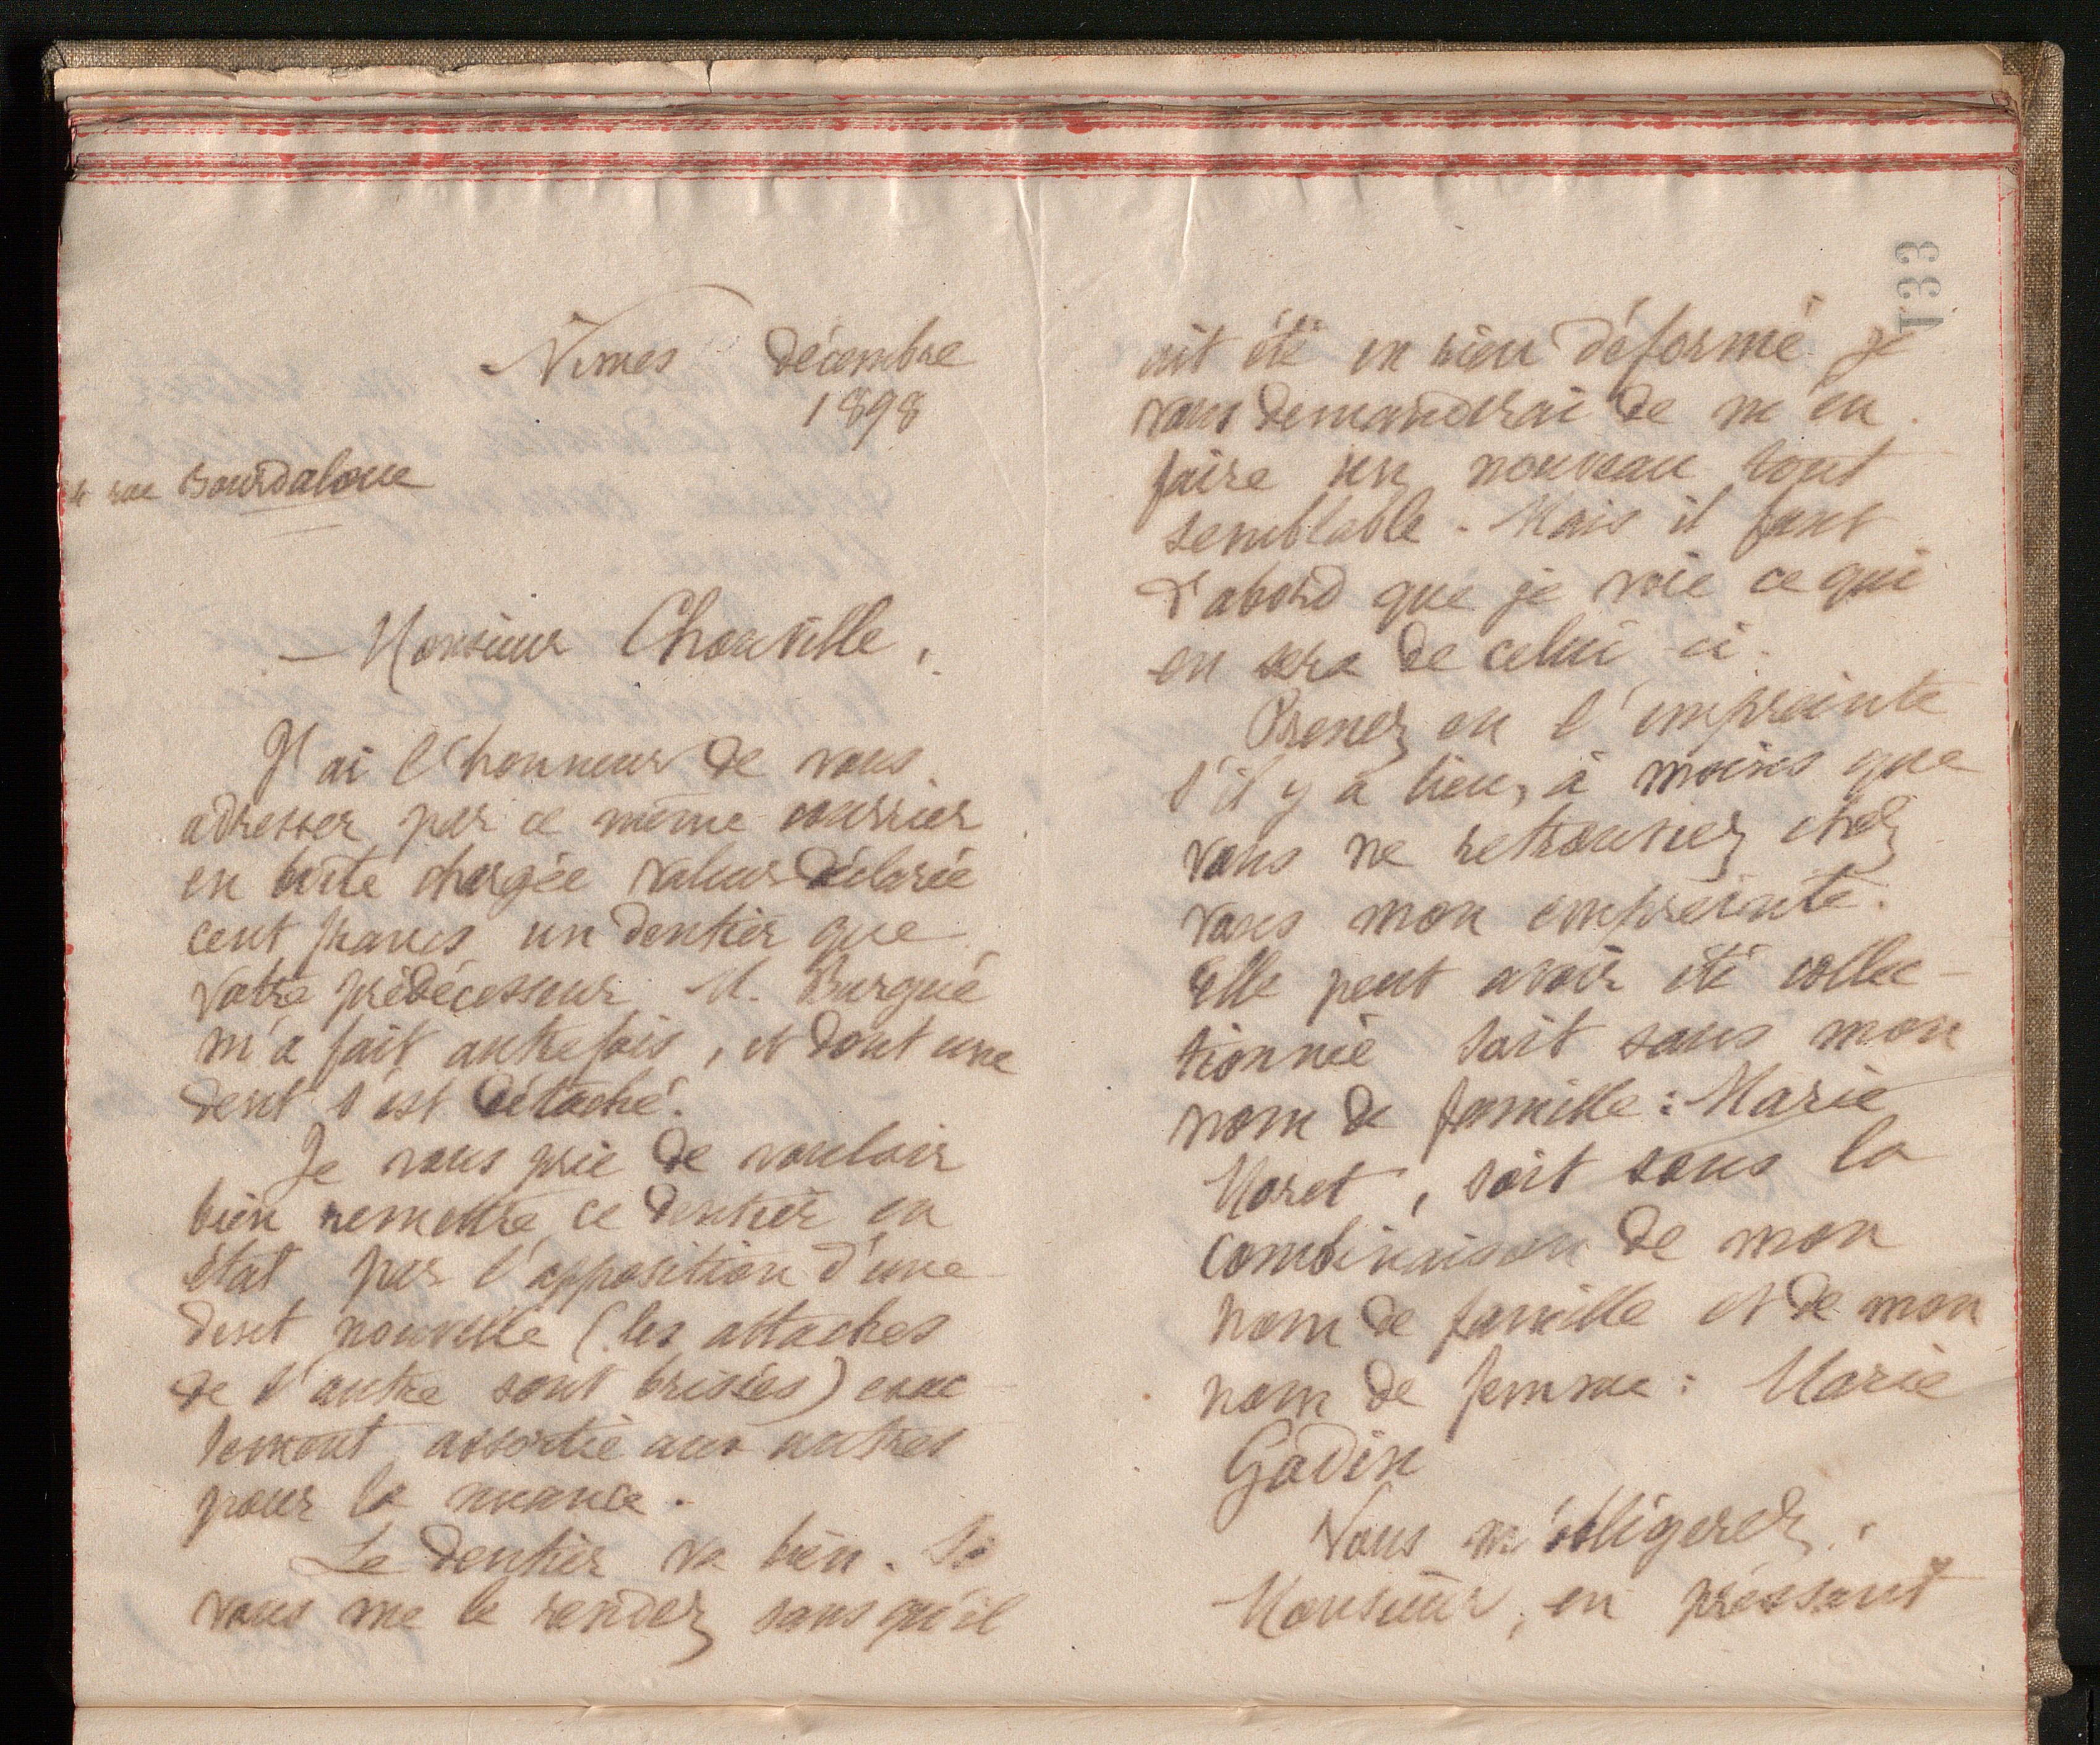 Nimes décembre
1898
4 rue Bourdaloue
— Monsieur Chouville,
J'ai l'honneur de vous
adresser par ce même courrier
en boîte chargée valeur déclarée
cent francs un dentier que
votre prédécesseur M. Burgué
m'a fait autrefois, et dont une
dent s'est détaché.
Je vous prie de vouloir
bien remettre ce dentier en
état par l'apposition d'une
dent nouvelle (les attaches
de l'autre sont brisées) exac-
tement assortie aux autres
pour la nuance.
Le dentier va bien. Si
vous me le rendez sans qu'il
133
ait été en rien déformé je
vous demanderai de m'en
faire un nouveau tout
semblable. Mais il faut
d'abord que je voie ce qui
en sera de celui-ci.
Prenez en l'empreinte
s'il y a lieu, à moins que
vous ne retrouviez chez
vous mon empreinte.
Elle peut avoir été collec-
tionnée soit sous mon
nom de famille : Marie
Moret, soit sous la
combinaison de mon
nom de famille et de mon
nom de femme : Marie
Godin
Vous m'obligerez,
Monsieur, en pressant